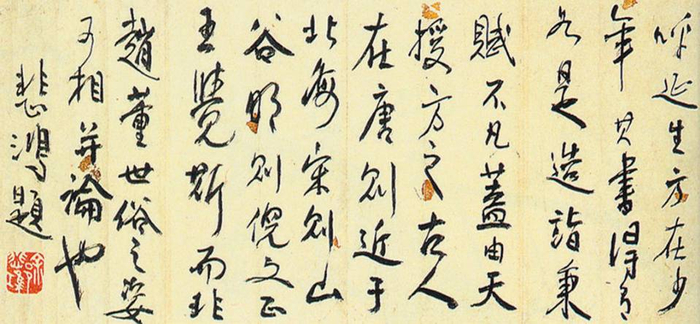 呼延生方在少
年其書得有
如是造詣秉
賦不凡蓋由天
授方之古人
在唐則近于
北海宋則山
谷明則倪文正
王覺斯而非
趙董世俗之姿
可相并論也
悲鴻題